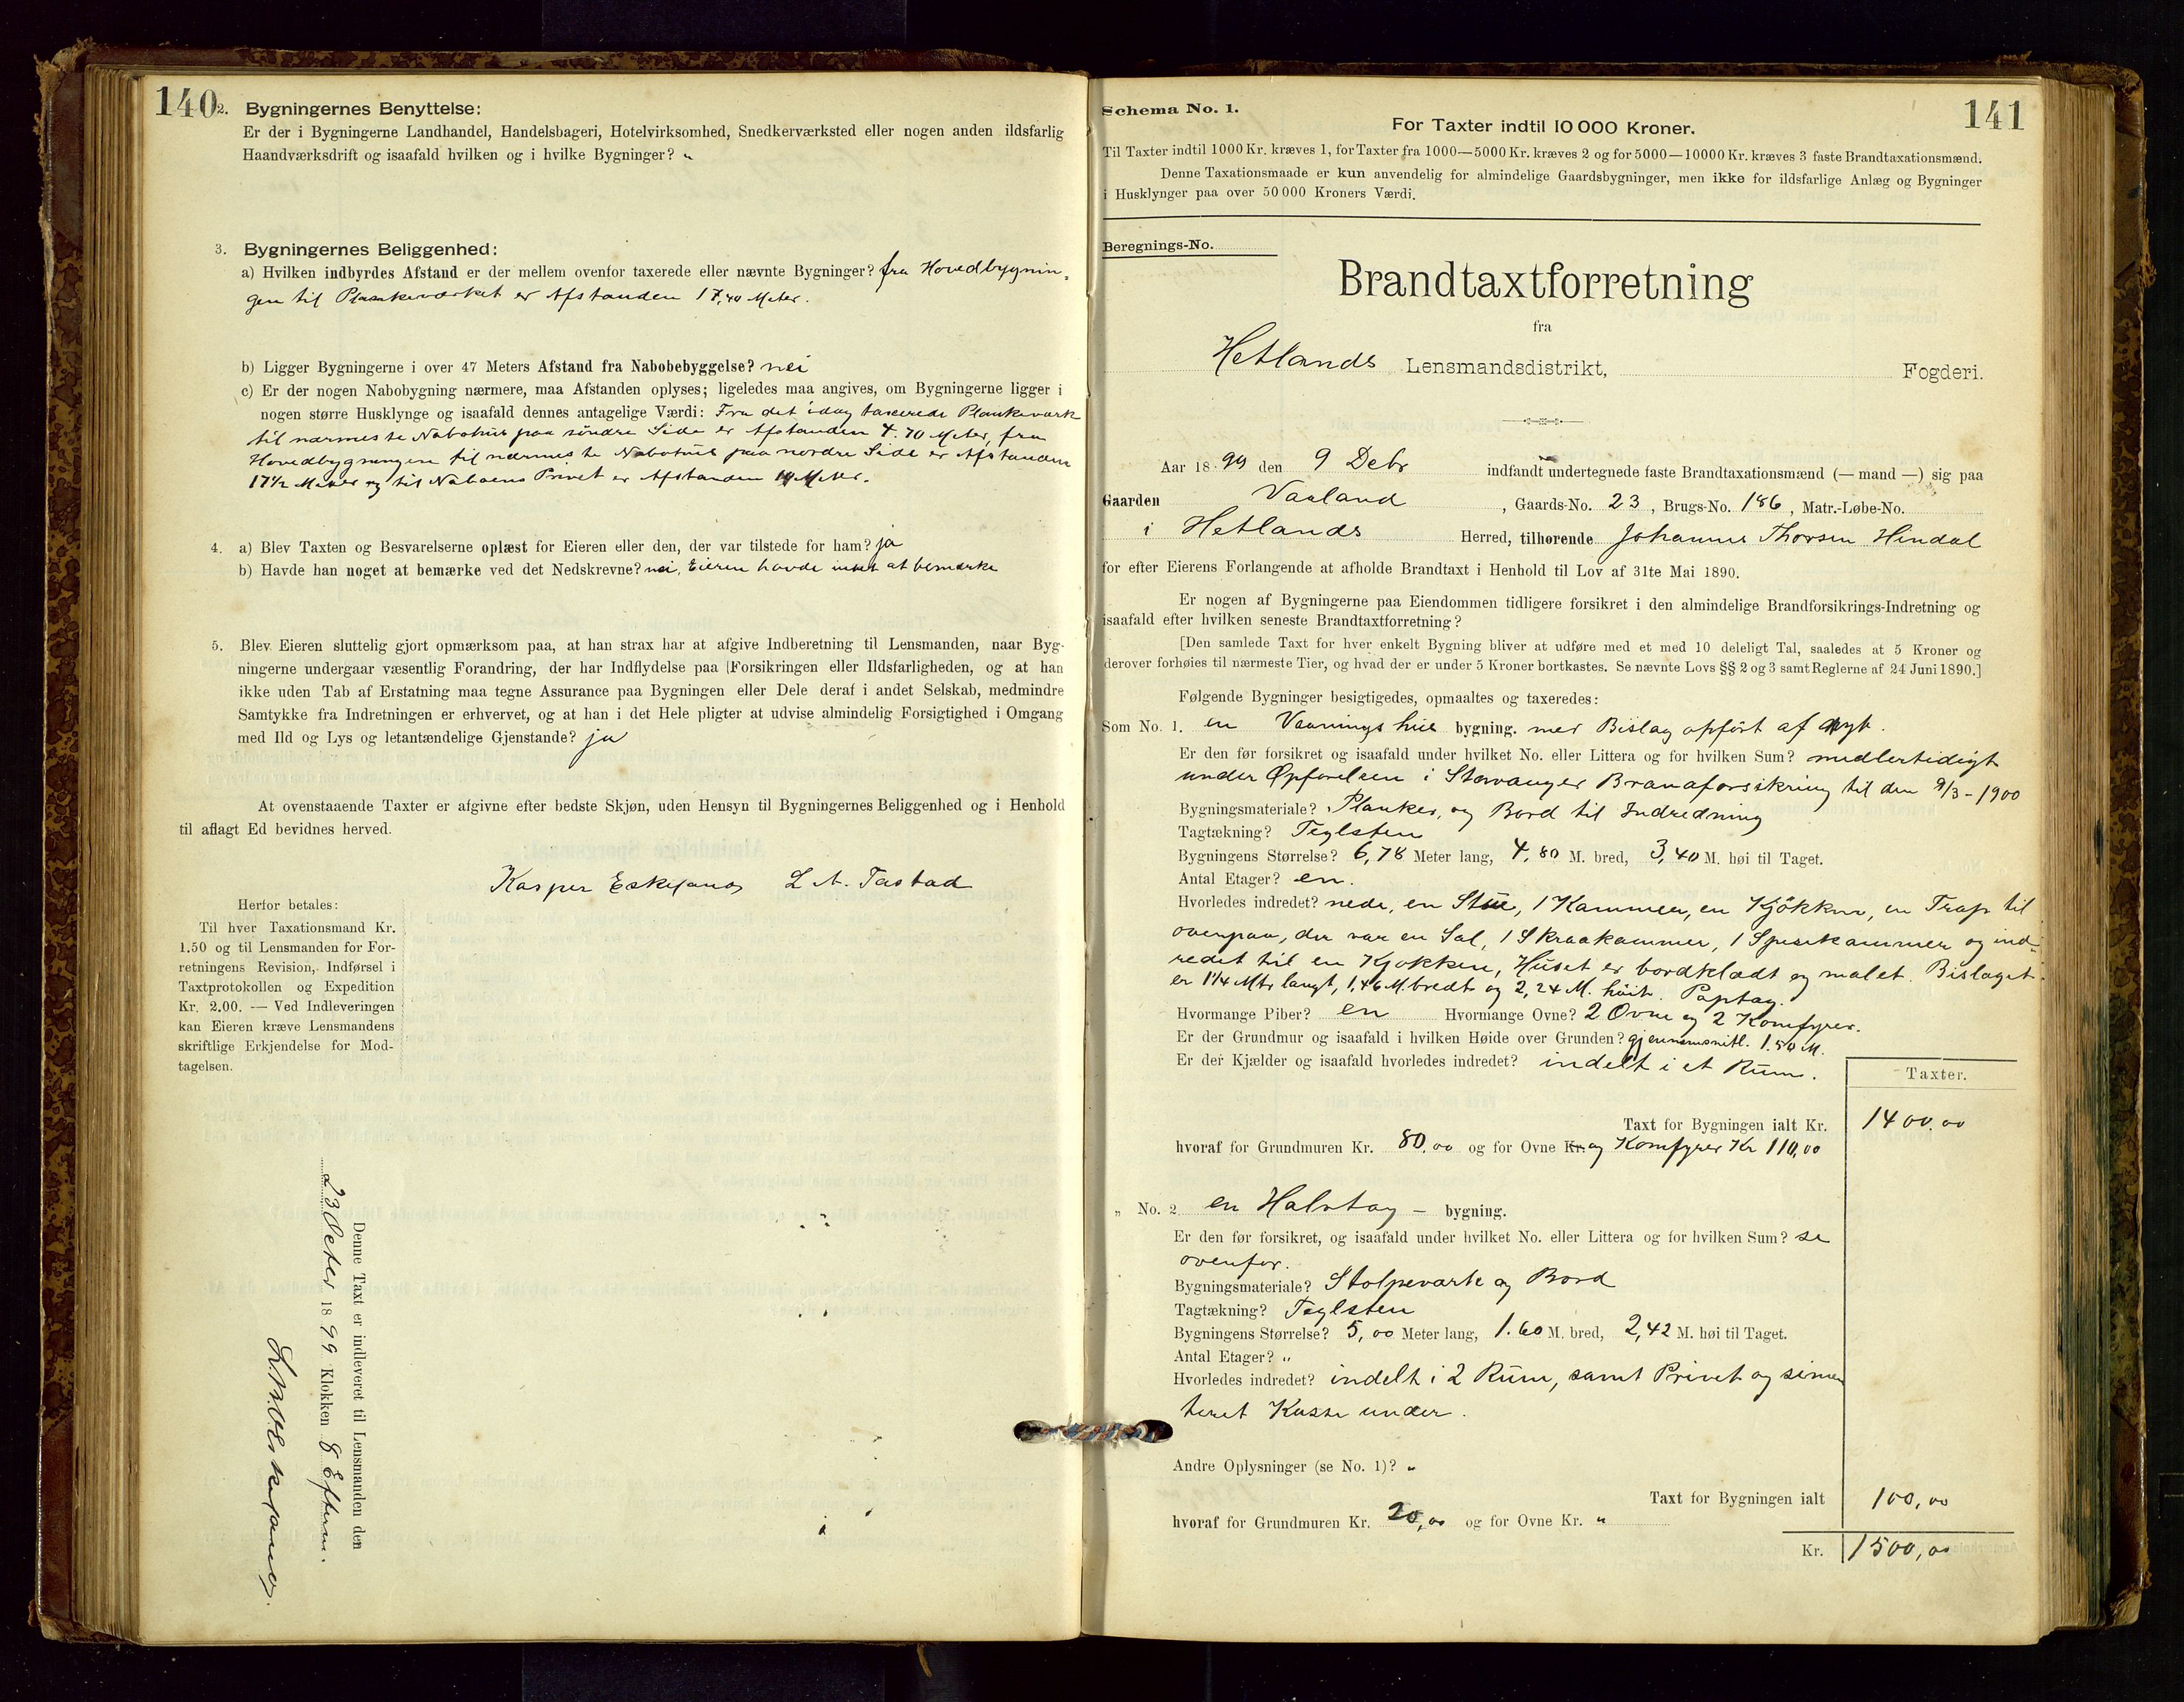 140
2. Bygningernes Benyttelse:
Er der i Bygningerne Landhandel, Handelsbageri, Hotelvirksomhed, Snedkerværksted eller nogen anden ildsfarlig
Haandværksdrift og isaafald hvilken og i hvilke Bygninger? "
3. Bygningernes Beliggenhed:
a) Hvilken indbyrdes Afstand er der mellem ovenfor taxerede eller nævnte Bygninger? fra Hovedbygnin-
gen til Plankeværket er Afstanden 17,40 Meter.
b) Ligger Bygningerne i over 47 Meters Afstand fra Nabobebyggelse? nei
c) Er der nogen Nabobygning nærmere, maa Afstanden oplyses; ligeledes maa angives, om Bygningerne ligger i
nogen større Husklynge og isaafald dennes antagelige Værdi: Fra det idag taxerede Plankeværk
til nærmeste Nabohus paa söndre Side er Afstanden 4.70 Meter, fra
Hovedbygningen til nærmeste Nabohus paa nordre Side er Afstanden
17½ Meter og til Naboens Privet er Afstanden Meter.
4. a) Blev Taxten og Besvarelserne oplæst for Eieren eller den, der var tilstede for ham? ja
b) Havde han noget at bemærke ved det Nedskrevne? nei, Eieren havde intet at bemærke
5. Blev Eieren sluttelig gjort opmærksom paa, at han strax har at afgive Indberetning til Lensmanden, naar Byg-
ningerne undergaar væsentlig Forandring, der har Indflydelse paa Forsikringen eller Ildsfarligheden, og at han
ikke uden Tab af Erstatning maa tegne Assurance paa Bygningen eller Dele deraf i andet Selskab, medmindre
Samtykke fra Indretningen er erhvervet, og at han i det Hele pligter at udvise almindelig Forsigtighed i Omgang
med Ild og Lys og letantændelige Gjenstande? ja
At ovenstaaende Taxter er afgivne efter bedste Skjøn, uden Hensyn til Bygningernes Beliggenhed og i Henhold
til aflagt Ed bevidnes herved.
Kasper Eskeland L. A. Tastad
Herfor betales:
Til hver Taxationsmand Kr.
1.50 og til Lensmanden for For-
retningens Revision, Indførsel i
Taxtprotokollen og Expedition
Kr. 2.00. — Ved Indleveringen
kan Eieren kræve Lensmandens
skriftlige Erkjendelse for Mod-
tagelsen.
Denne Taxt er indleveret til Lensmanden den
23 Decbr 1899 Klokken 8 Efterm.
Schema No. 1.
141
For Taxter indtil 10 000 Kroner.
Til Taxter indtil 1000 Kr. kræves 1, for Taxter fra 1000—5000 Kr. kræves 2 og for 5000—10000 Kr. kræves 3 faste Brandtaxationsmænd.
Denne Taxationsmaade er kun anvendelig for almindelige Gaardsbygninger, men ikke for ildsfarlige Anlæg og Bygninger
i Husklynger paa over 50 000 Kroners Værdi.
Beregnings-No.
Brandtaxtforretning
fra
Hetlands Lensmandsdistrikt, Fogderi.
Aar 1899 den 9 Debr indfandt undertegnede faste Brandtaxationsmænd (— mand —) sig paa
Gaarden Vaaland, Gaards-No. 23, Brugs-No. 186, Matr.-Løbe-No.
i Hetlands Herred, tilhørende Johannes Thorsen Hindal
for efter Eierens Forlangende at afholde Brandtaxt i Henhold til Lov af 31te Mai 1890.
Er nogen af Bygningerne paa Eiendommen tidligere forsikret i den almindelige Brandforsikrings-Indretning og
isaafald efter hvilken seneste Brandtaxtforretning?
[Den samlede Taxt for hver enkelt Bygning bliver at udføre med et med 10 deleligt Tal, saaledes at 5 Kroner og
derover forhøies til nærmeste Tier, og hvad der er under 5 Kroner bortkastes. Se nævnte Lovs §§ 2 og 3 samt Reglerne af 24 Juni 1890.]
Følgende Bygninger besigtigedes, opmaaltes og taxeredes:
Som No. 1. en Vaaningshus bygning. med Bislag opfört af nyt.
Er den før forsikret og isaafald under hvilket No. eller Littera og for hvilken Sum? midlertidigt
under Opförelsen i Stavanger Brandforsikring til den 9/3 - 1900
Bygningsmateriale? Planker, og Bord til Indredning
Tagtækning? Teglsten
Bygningens Størrelse? 6,78 Meter lang, 4,80 M. bred, 3,40 M. høi til Taget.
Antal Etager? en.
Hvorledes indredet? nede, en Stue, 1 Kammer, en Kjökken, en Trap til
ovenpaa, der var en Sal, 1 Skraakammer, 1 Spisekammer og ind-
redet til en Kjøkken, Huset er bordklædt og malet. Bislaget
er 1¼ Mtr langt, 1,46 M. bredt og 2,24 M. höit. Paptag.
Hvormange Piber? en Hvormange Ovne? 2 Ovne og 2 Komfyrer.
Er der Grundmur og isaafald i hvilken Høide over Grunden? gjennemsnitl. 1.50 M.
Er der Kjælder og isaafald hvorledes indredet? indelt i et Rum.
Taxter.
Taxt for Bygningen ialt Kr. 1400,00
hvoraf for Grundmuren Kr. 80,00 og for Ovne Kr. og Komfyrer Kr 110,00
" No. 2 en Halvtag - bygning.
Er den før forsikret, og isaafald under hvilket No. eller Littera og for hvilken Sum? se
ovenfor.
Bygningsmateriale? Stolpeværk og Bord
Tagtækning? Teglsten
Bygningens Størrelse? 5,00 Meter lang, 1.60 M. bred, 2,42 M. høi til Taget.
Antal Etager? "
Hvorledes indredet? indelt i 2 Rum, samt Privet og simen
teret Kasse under.
Andre Oplysninger (se No. 1)? "
Taxt for Bygningen ialt 100,00
hvoraf for Grundmuren Kr. 20,00 og for Ovne Kr. "
Kr. 1500,00